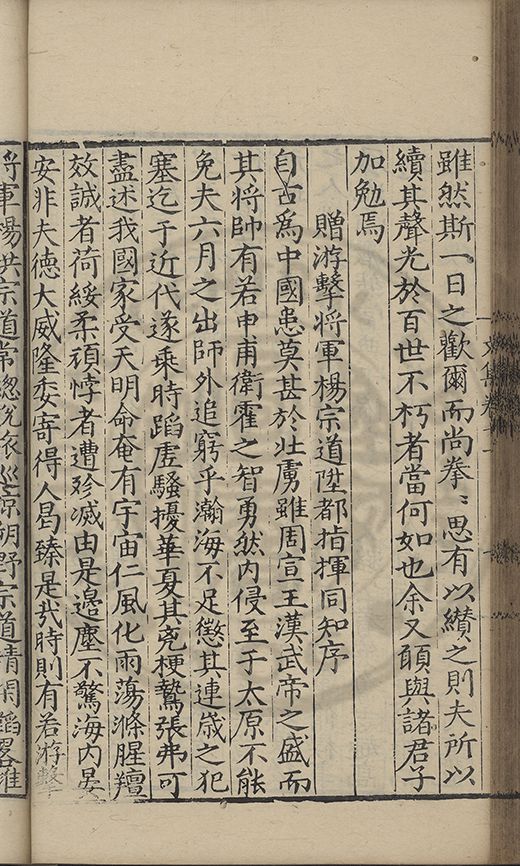 雖然斯一日之歡爾而尚拳〻思有以纘之則夫所以
續其聲光於百世不朽者當何如也余又願與諸君子
加勉焉
贈游擊将軍楊宗道陞都指揮同知序
自古爲中國患莫甚於北虜雖周宣王漢武帝之盛而
其将帥有若申甫衛霍之智勇然內侵至于太原不能
免夫六月之出師外追窮乎瀚海不足懲其連歳之犯
塞迄于近代遂乗時蹈虛騷擾華夏其兇梗鷙張弗可
盡述我國家受天明命奄有宇宙仁風化雨蕩滌腥羶
效誠者荷綏柔頑悖者遭殄滅由是邊塵不驚海内晏
安非夫德大威隆委寄得人曷臻是㢤時則有若游擊
将軍楊洪宗道常緫兵依巡涼朔野宗道精閑韜畧雄